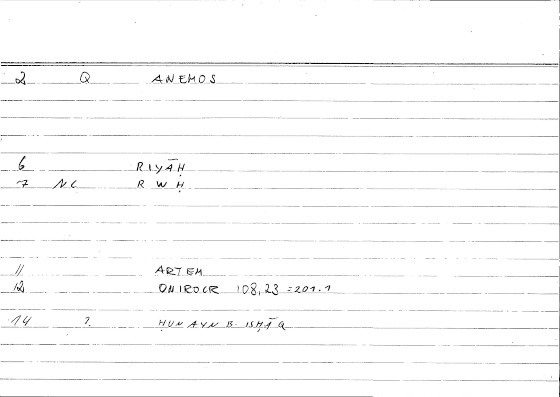 2 Q ANEMOS
6 RIYĀḤ
7 NC R W Ḥ
11 ARTEM
12 ONIROCR 108,23 = 201.1
14 ? ḤUNAYN B. ISḤĀQ